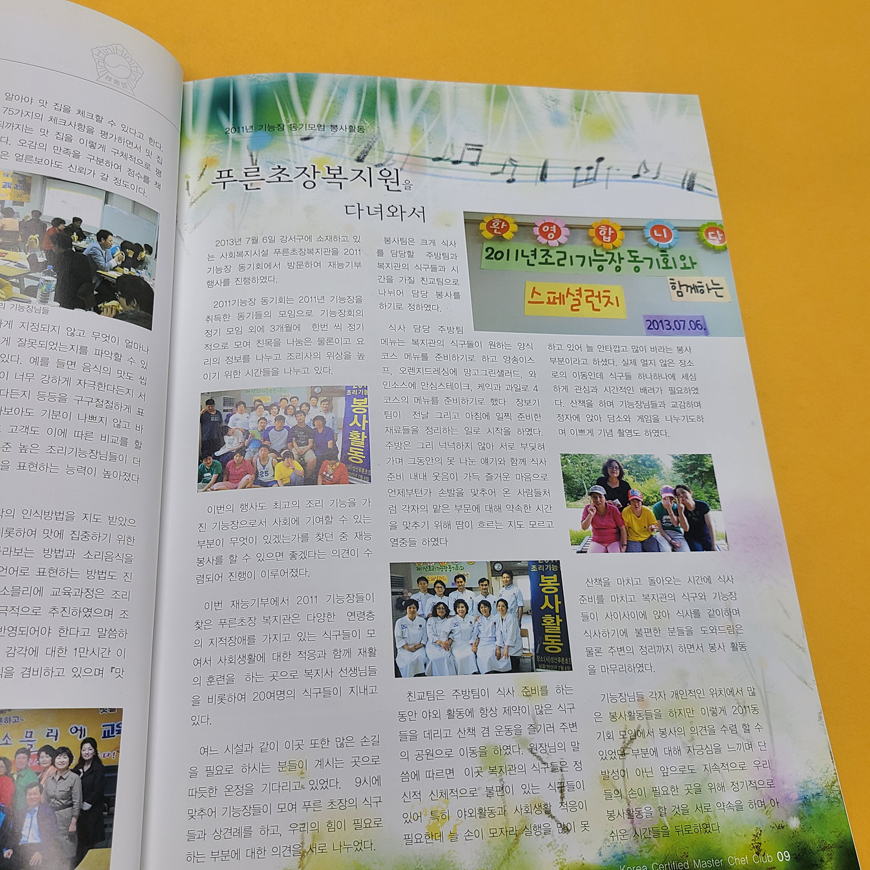 알아야 맛 집을 체크할 수 있다고 한다.
75가지의 체크사항을 평가하면서 맛 집
까지는 맛 집을 이렇게 구체적으로 평
오감의 만족을 구분하여 점수를 책
은 얼른보아도 신뢰가 갈 정도이다.
리 기능장님들
하게 지정되지 않고 무엇이 얼마나
게 잘못되었는지를 파악할 수 있
있다. 예를 들면 음식의 맛도 씹
이 너무 강하게 자극한다든지 서
다든지 등등을 구구절절하게 표
바보아도 기분이 나쁘지 않고 바
고객도 이에 따른 비교를 할
준 높은 조리기능장님들이 더
을 표현하는 능력이 높아졌다
의 인식방법을 지도 받았으
비롯하여 맛에 집중하기 위한
라보는 방법과 소리음식을
언어로 표현하는 방법도 진
소믈리에 교육과정은 조리
극적으로 추진하였으며 조
반영되어야 한다고 말씀하
감각에 대한 1만시간 이
을 겸비하고 있으며 『맛
소믈리에 교육
2011년 기능장 동기모임 봉사활동
푸른초장복지원을
다녀와서
2013년 7월 6일 강서구에 소재하고 있
는 사회복지시설 푸른초장복지관을 2011
기능장 동기회에서 방문하여 재능기부
행사를 진행하였다.
2011기능장 동기회는 2011년 기능장을
취득한 동기들의 모임으로 기능장회의
정기 모임 외에 3개월에 한번 씩 정기
적으로 모여 친목을 나눔은 물론이고 요
리의 정보를 나누고 조리사의 위상을 높
이기 위한 시간들을 나누고 있다.
봉사활동
이번의 행사도 최고의 조리 기능을 가
진 기능장으로서 사회에 기여할 수 있는
부분이 무엇이 있겠는가를 찾던 중 재능
봉사를 할 수 있으면 좋겠다는 의견이 수
렴되어 진행이 이루어졌다.
이번 재능기부에서 2011 기능장들이
찾은 푸른초장 복지관은 다양한 연령층
의 지적장애를 가지고 있는 식구들이 모
여서 사회생활에 대한 적응과 함께 재활
의 훈련을 하는 곳으로 복지사 선생님들
을 비롯하여 20여명의 식구들이 지내고
있다.
여느 시설과 같이 이곳 또한 많은 손길
을 필요로 하시는 분들이 계시는 곳으로
따듯한 온정을 기다리고 있었다. 9시에
맞추어 기능장들이 모여 푸른 초장의 식구
들과 상견례를 하고, 우리의 힘이 필요로
하는 부분에 대한 의견을 서로 나누었다.
봉사팀은 크게 식사
를 담당할 주방팀과
복지관의 식구들과 시
간을 가질 친교팀으로
나뉘어 담당 봉사를
하기로 정하였다.
식사 담당 주방팀
메뉴는 복지관의 식구들이 원하는 양식
코스 메뉴를 준비하기로 하고 양송이스
프, 오렌지드레싱에 망고그린샐러드, 와
인소스에 안심스테이크, 케익과 과일로 4
코스의 메뉴를 준비하기로 했다. 장보기
팀이 전날 그리고 아침에 일찍 준비한
재료들을 정리하는 일로 시작을 하였다.
주방은 그리 넉넉하지 않아 서로 부딪혀
가며 그동안의 못 나눈 얘기와 함께 식사
준비 내내 웃음이 가득 즐거운 마음으로
언제부턴가 손발을 맞추어 온 사람들처
럼 각자의 맡은 부분에 대해 약속한 시간
을 맞추기 위해 땀이 흐르는 지도 모르고
열중들 하였다.
조리기능
봉사활동
친교팀은 주방팀이 식사 준비를 하는
동안 야외 활동에 항상 제약이 많은 식구
들을 데리고 산책 겸 운동을 즐기러 주변
의 공원으로 이동을 하였다. 원장님의 말
씀에 따르면 이곳 복지관의 식구들은 정
신적 신체적으로 불편이 있는 식구들이
있어 특히 야외활동과 사회생활 적응이
필요한데 늘 손이 모자라 실행을 많이 못
환영합니다
2011년조리기능장동기회와
함께하는
스페셜런치
2013.07.06.
하고 있어 늘 안타깝고 많이 바라는 봉사
부분이라고 하셨다. 실제 멀지 않은 장소
로의 이동인데 식구들 하나하나에 세심
하게 관심과 시간적인 배려가 필요하였
다. 산책을 하며 기능장님들과 교감하며
정자에 앉아 담소와 게임을 나누기도하
며 이쁘게 기념 촬영도 하였다.
산책을 마치고 돌아오는 시간에 식사
준비를 마치고 복지관의 식구와 기능장
들이 사이사이에 앉아 식사를 같이하며
식사하기에 불편한 분들을 도와드림은
물론 주변의 정리까지 하면서 봉사 활동
을 마무리하였다.
기능장님들 각자 개인적인 위치에서 많
은 봉사활동들을 하지만 이렇게 2011동
기회 모임에서 봉사의 의견을 수렴 할 수
있었던 부분에 대해 자긍심을 느끼며 단
발성이 아닌 앞으로도 지속적으로 우리
들의 손이 필요한 곳을 위해 정기적으로
봉사활동을 할 것을 서로 약속을 하며 아
쉬운 시간들을 뒤로하였다.
Korea Certified Master Chef Club 09